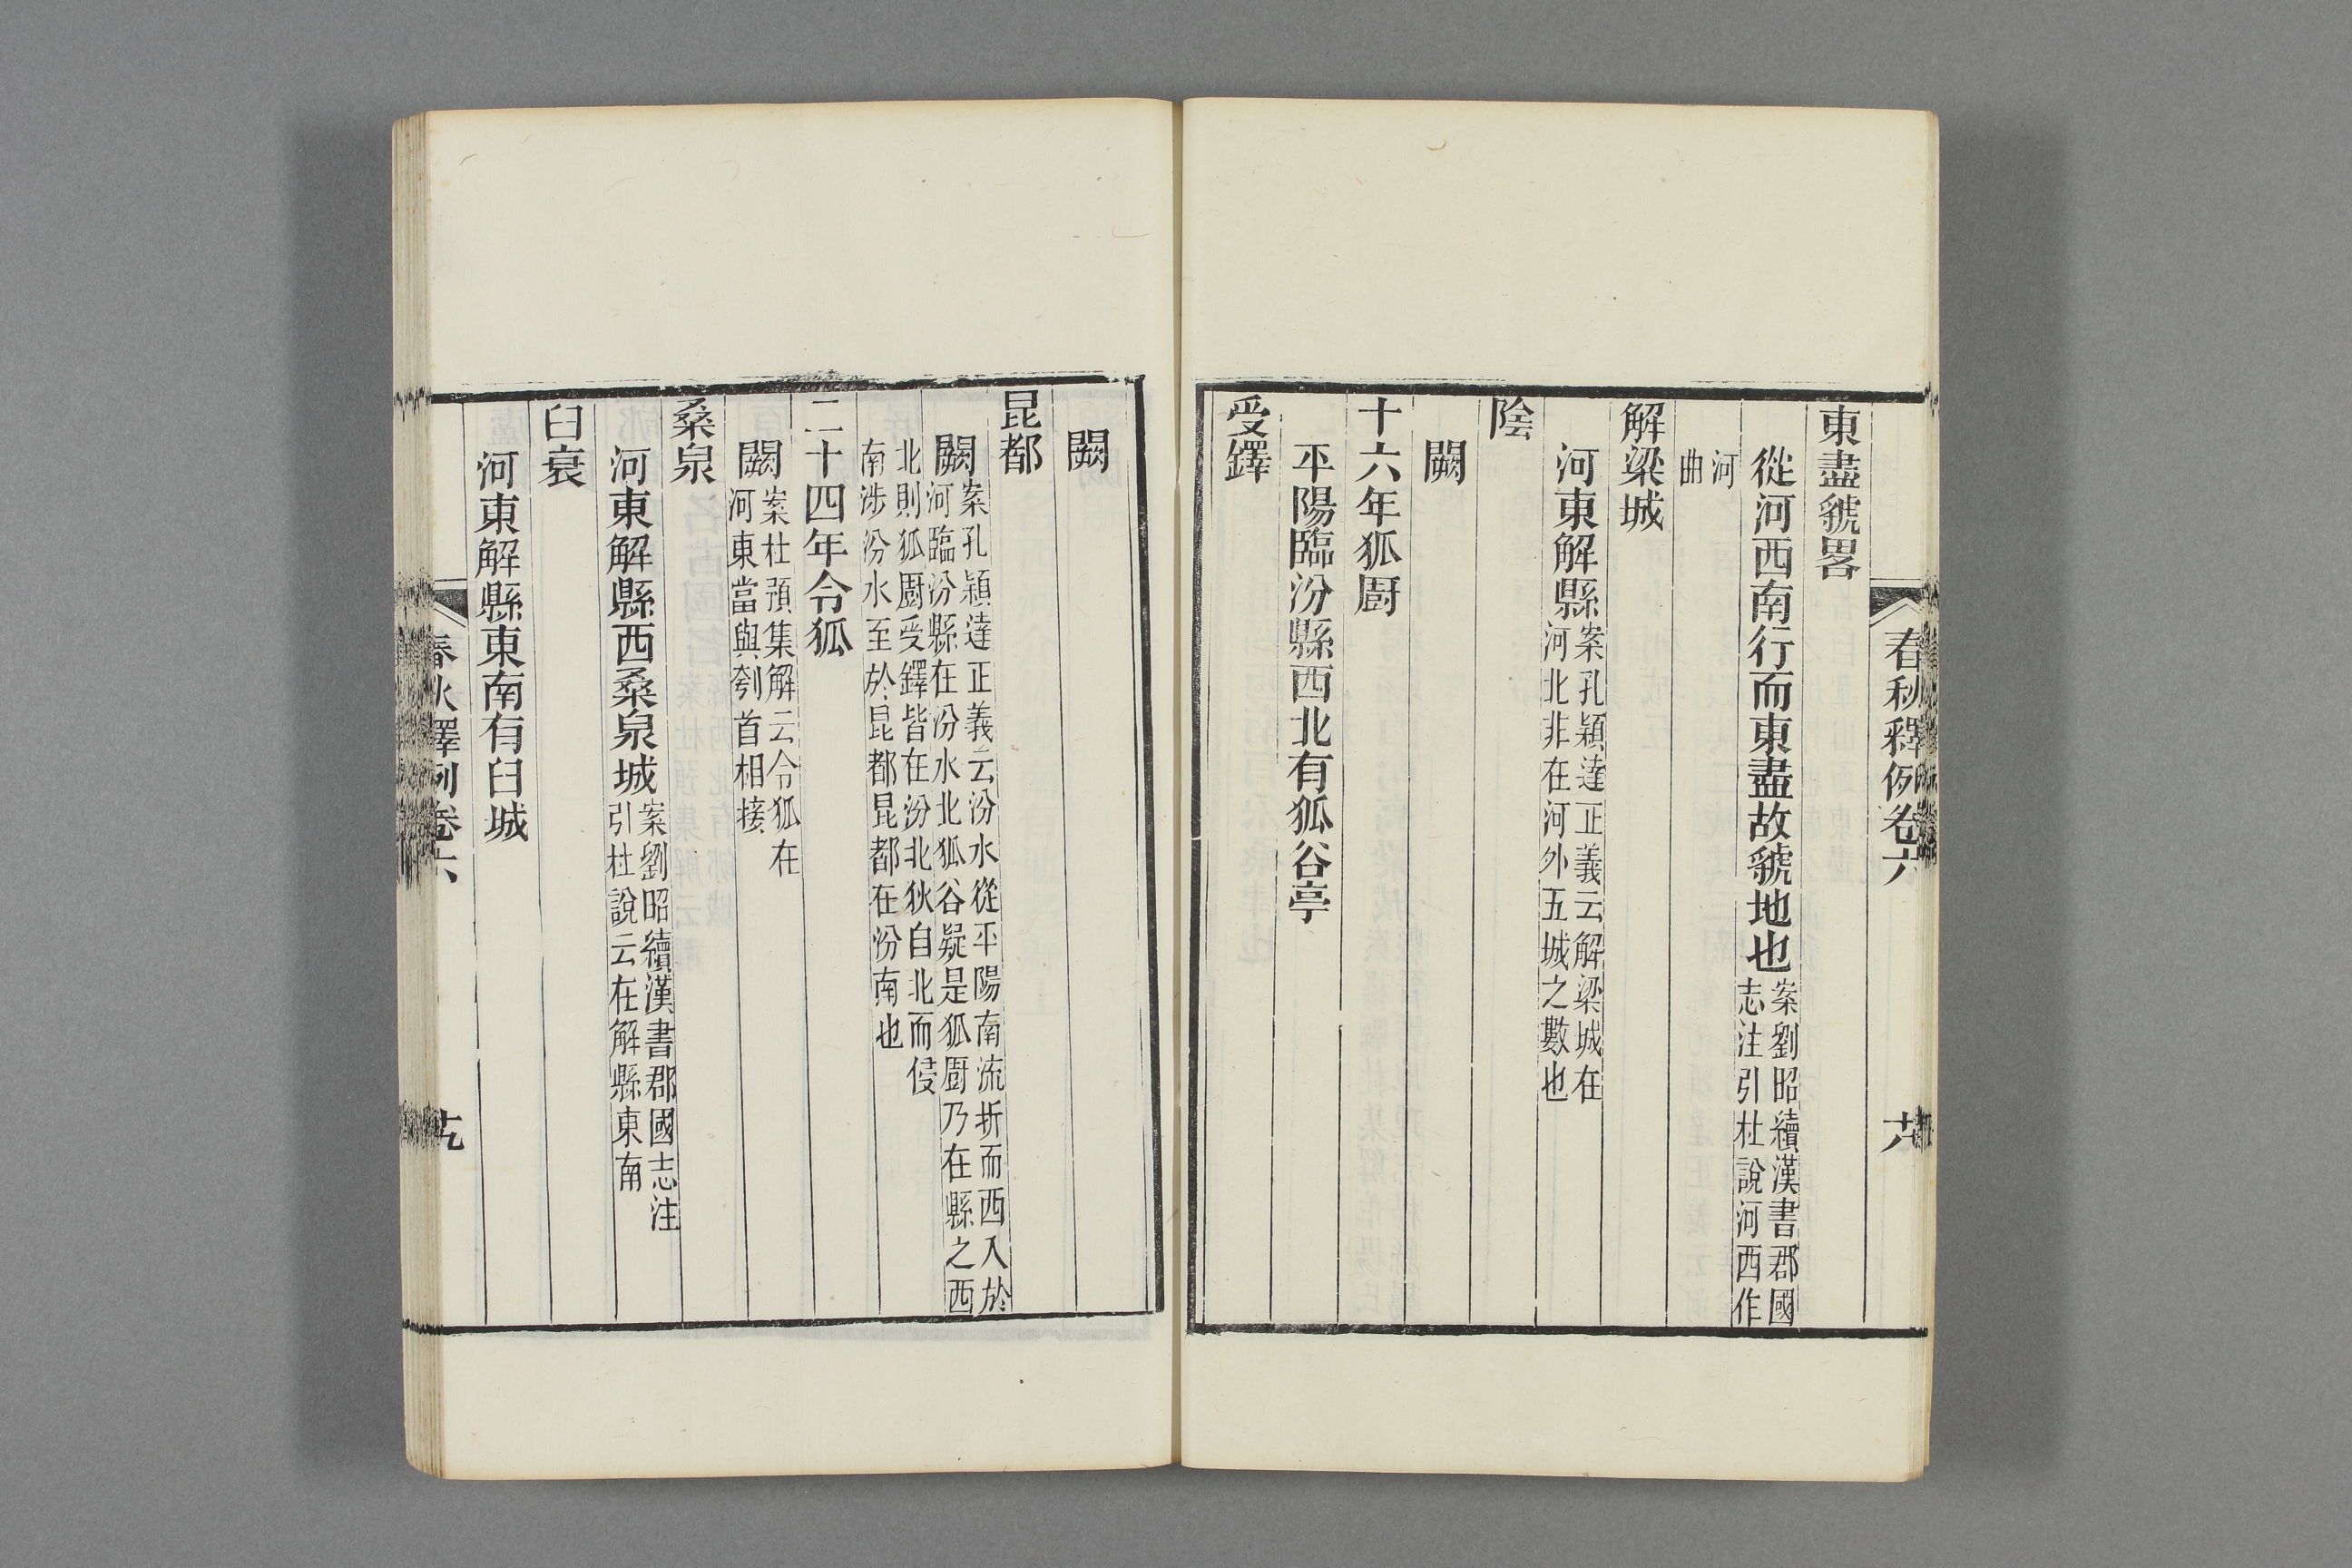 春秋釋例卷六
东
東盡虢畧
從河西南行而東盡故虢地也案劉昭續漢書郡國志注引杜說河西作
河曲
解梁城
河東解縣案孔穎達正義云解梁城在河北非在河外五城之數也
陰
闕
十六年狐厨
平陽臨汾縣西北有狐谷亭
受鐸
闕
昆都
闕案孔穎達正義云汾水從平陽南流折而西入於河臨汾縣在汾水北狐谷疑是狐厨乃在縣之西
北則狐厨受鐸皆在汾北狄自北而侵南涉汾水至於昆都昆都在汾南也
二十四年令狐
闕案杜預集解云令狐在河東當與刳首相接
桑泉
河東解縣西桑泉城案劉昭續漢書郡國志注引杜說云在解縣東南
臼衰
河東解縣東南有臼城
春秋釋例卷六